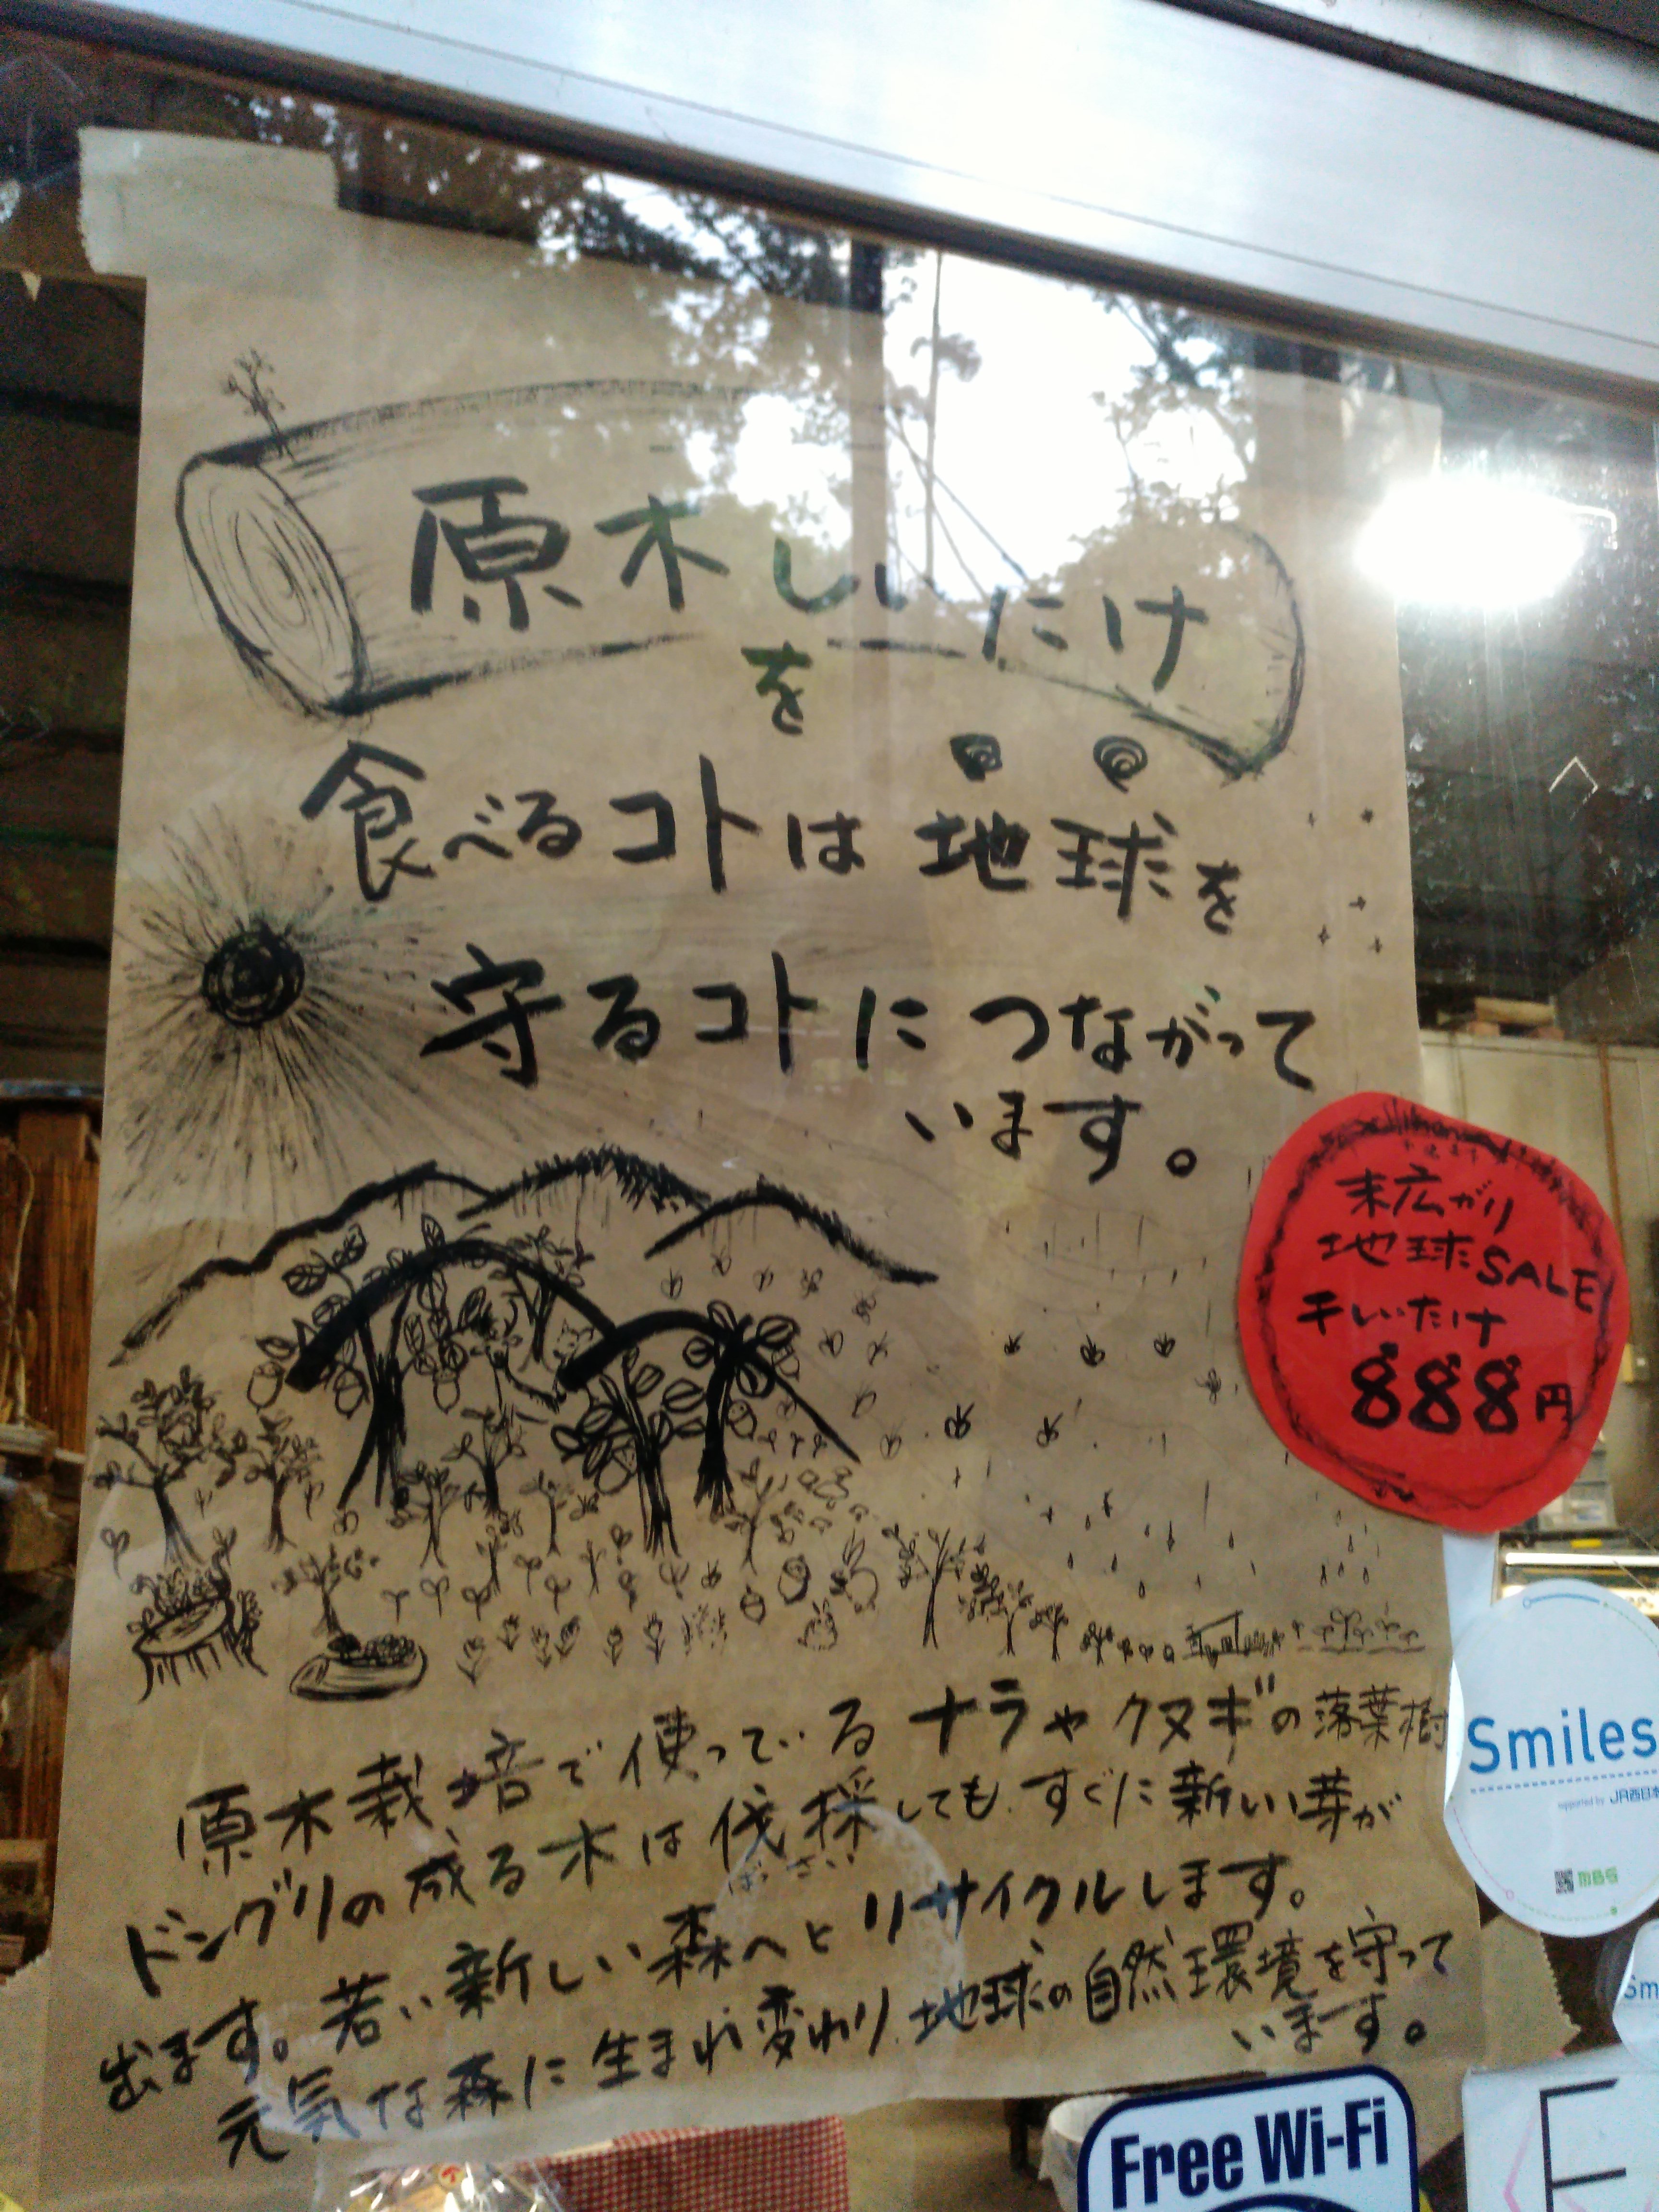 原木しいたけ
を
食べるコトは地球を
守るコトにつながって
います。
末広がり
地球SALE
干しいたけ
888円
原木栽培で使っているナラやクヌギの落葉樹
ドングリの成る木は伐採しても、すぐに新しい芽が
ばっさい
出ます。若い新しい森へとリサイクルします。
元気な森に生まれ変わり、地球の自然環境を守って
います。
Smiles
supported by JR西日本
MBS
Sm
Free Wi-Fi